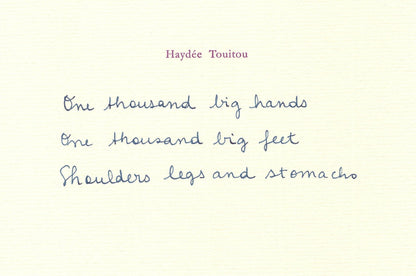 Haydée Touitou
One thousand big hands
One thousand big feet
Shoulders legs and stomachs